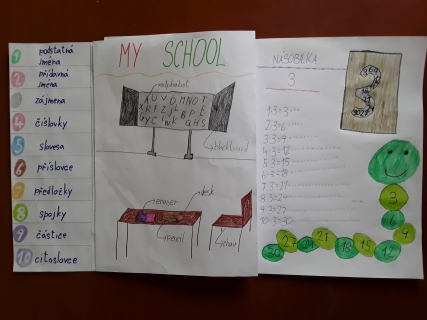 1 podstatná
jména
2 přídavná
jména
3 zájmena
4 číslovky
5 slovesa
6 příslovce
7 předložky
8 spojky
9 částice
10 citoslovce
MY SCHOOL
alphabet
blackboard
desk
pencil
chair
NÁSOBILKA
3
1·3=3
2·3=6
3·3=9
4·3=12
5·3=15
6·3=18
7·3=21
8·3=24
9·3=27
10·3=30
3
6
9
12
15
18
21
24
27
30